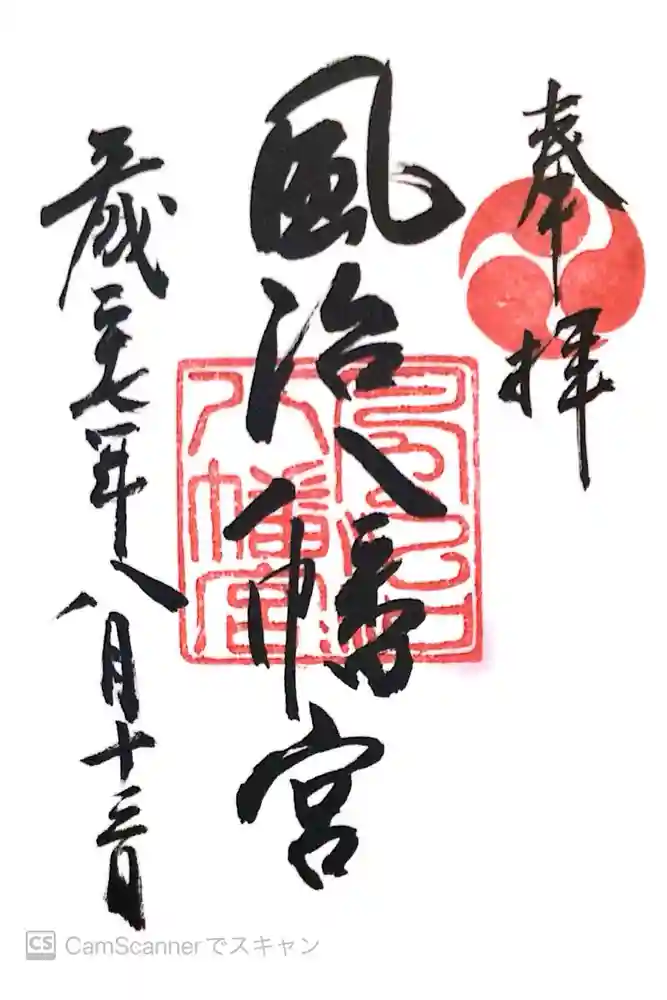 奉拝
風治八幡宮
平成二十七年八月十三日
風治
八幡宮
CS CamScannerでスキャン